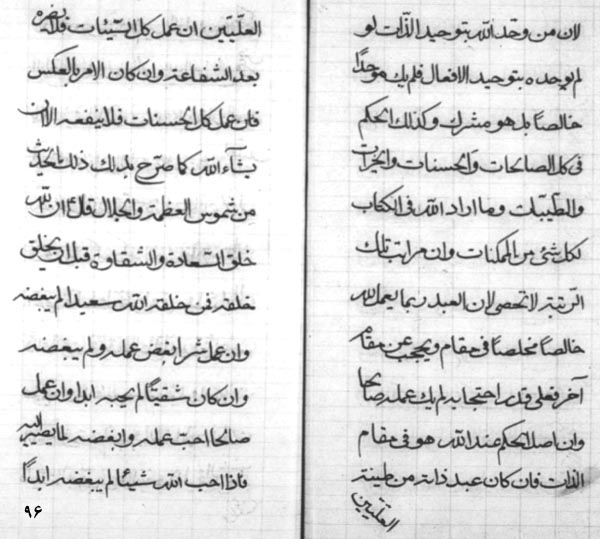 لان من وحد الله بتوحيد الذات لو
لم يوحده بتوحيد الافعال فلم يك موحداً
خالصاً بل هو مشرك وكذلك الحكم
فى كل الصالحات والحسنات والخيرات
والطيبات وما اراد الله فى الكتاب
لكل شئ من الممكنات وان مراتب تلك
الرتبة لا تحصى لان العبد ربما يعمل لله
خالصاً مخلصاً فى مقام ويحجب عن مقام
آخر فعلى قدر احتجابه لم يك عمله صالحا
وان اصل الحكم عند الله هو فى مقام
الذات فان كان عبد ذاته من طينة
العليين
العليين ان عمل كل السيئات فلا يضره
بعد الشفاعة وان كان الامر بالعكس
فان عمل كل الحسنات فلا ينفعه الا ان
يشآء الله كما صرح بذلك ذلك الحديث
من شموس العظمة والجلال قال ان الله
خلق السعادة والشقاوة قبل ان يخلق
خلقه فمن خلقه الله سعيدا لم يبغضه
وان عمل شرا بغض عمله ولم يبغضه
وان كان شقيّاً لم يحبه ابدا وان عمل
صالحا احب عمله وابغضه لما يصير اليه
فاذا احب الله شيئا لم يبغضه ابداً
۹۶